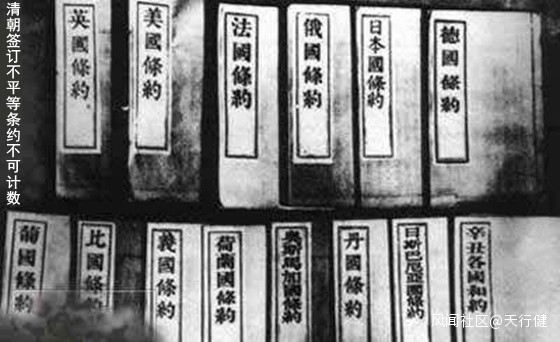 清朝签订不平等条约不可计数
英國條約
美國條約
法國條約
俄國條約
日本國條約
德國條約
葡國條約
比國條約
義國條約
荷蘭國條約
奧斯馬加國條約
丹國條約
日斯巴尼亞國條約
辛丑各國和約
风闻社区@天行健